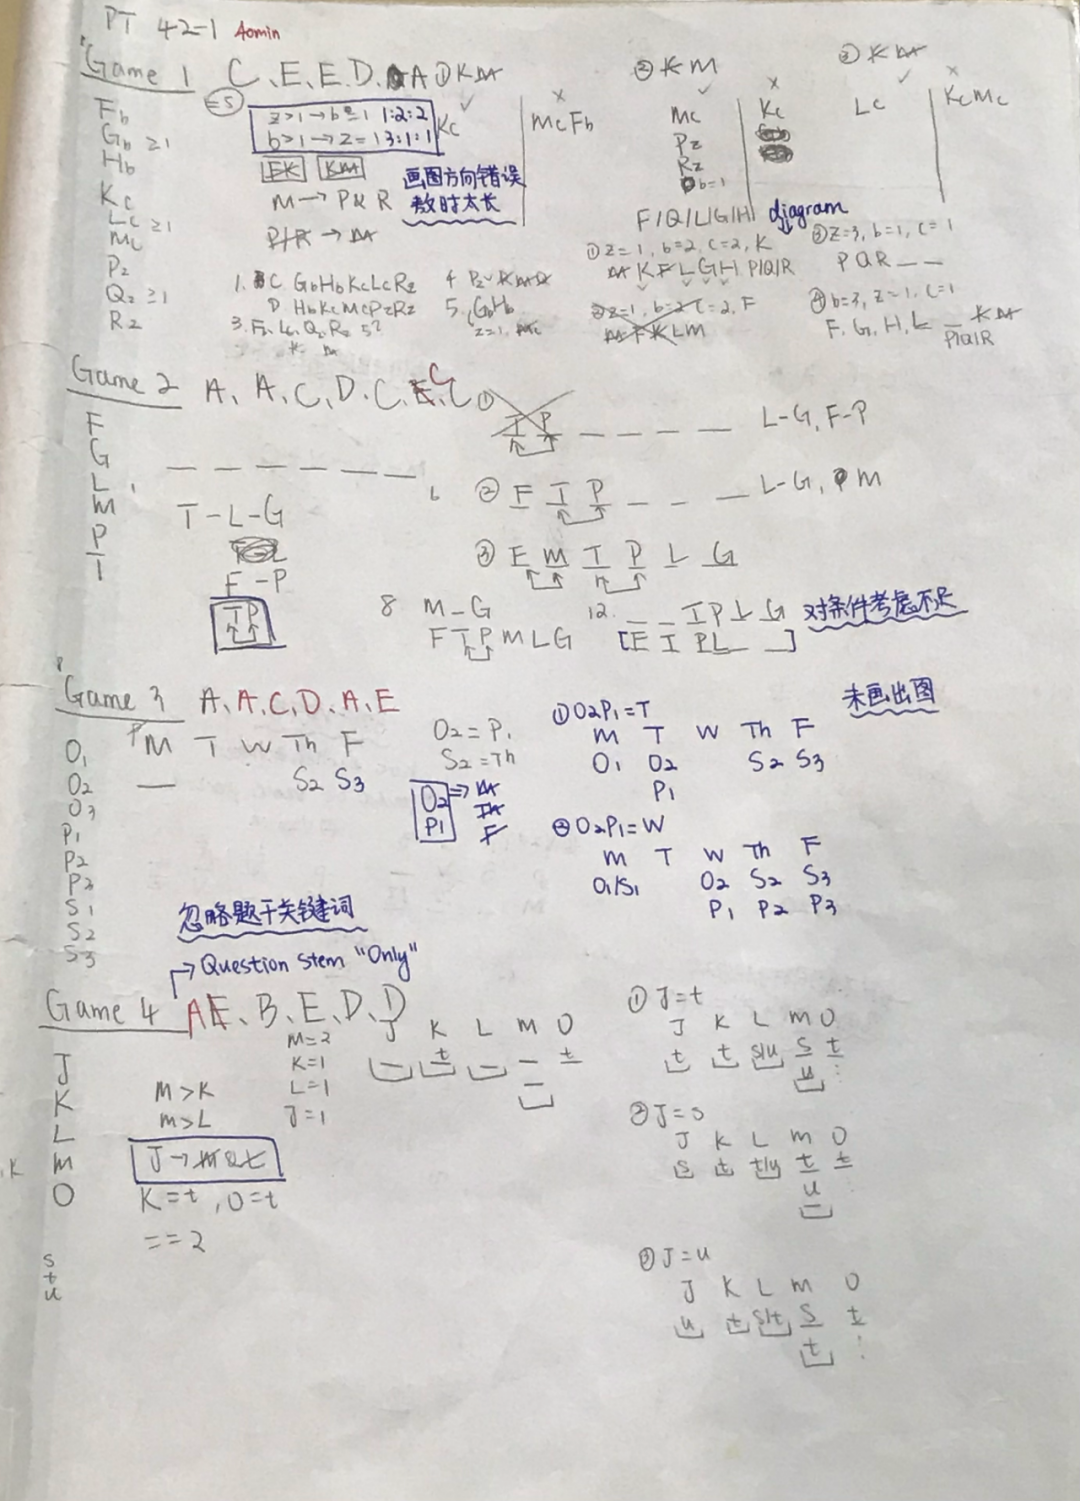 PT 42-1 40min
Game 1 C、E、E、D、A
Fb
Gb ≥1
Hb
Kc
Lc ≥1
Mc
Pz
Qz ≥1
Rz
=5
z>1→b=1 1:2:2
b>1→z=1 3:1:1
FK KM
M→P&R
P/R→M
画图方向错误
敖时太长
① KM
✓ Kc
× McFb
② KM
✓ Mc
Pz
Rz
b=1
× Kc
F/Q/L/G/H
③ KM
✓ Lc
× KcMc
diagram
① z=1, b=2, c=2, K
M K F L G H P/Q/R
② z=1, b=2 c=2, F
M F K L M
③ z=3, b=1, c=1
P Q R _ _
④ b=3, z=1, c=1
F、G、H、L _ KM
P/Q/R
1. C GbHbKcLcRz
D HbKcMcPzRz
3. Fb Lc Qz Rz 5?
K M
4 Pz
5. GbHb
z=1, Mc
Game 2 A、A、C、D、C、E、C
F
G
L
M
P
T
_ _ _ _ _ _
1 6
T-L-G
F-P
TP
① T P _ _ _ _ L-G, F-P
② F T P _ _ _ L-G, M
③ F M T P L G
8 M-G
F T P M L G
12. _ _ T P L G
[F T P L _ _]
对条件考虑不足
Game 3 A、A、C、D、A、E
O1
O2
O3
P1
P2
P3
S1
S2
S3
M T W Th F
S2 S3
O2=P1
S2=Th
O2
P1
⇒ M
Th
F
① O2P1=T
M T W Th F
O1 O2 S2 S3
P1
② O2P1=W
M T W Th F
O1/S1 O2 S2 S3
P1 P2 P3
未画出图
忽略题干关键词
→Question stem "Only"
Game 4 AE、B、E、D、D
J
K
L
M
O
s
t
u
M>K
M>L
J→M&t
K=t, O=t
==2
M=2
K=1
L=1
J=1
J K L M O
t t
① J=t
J K L M O
t t s/u s t
u
② J=s
J K L M O
s t t/u t t
u
③ J=u
J K L M O
u t s/t s t
t